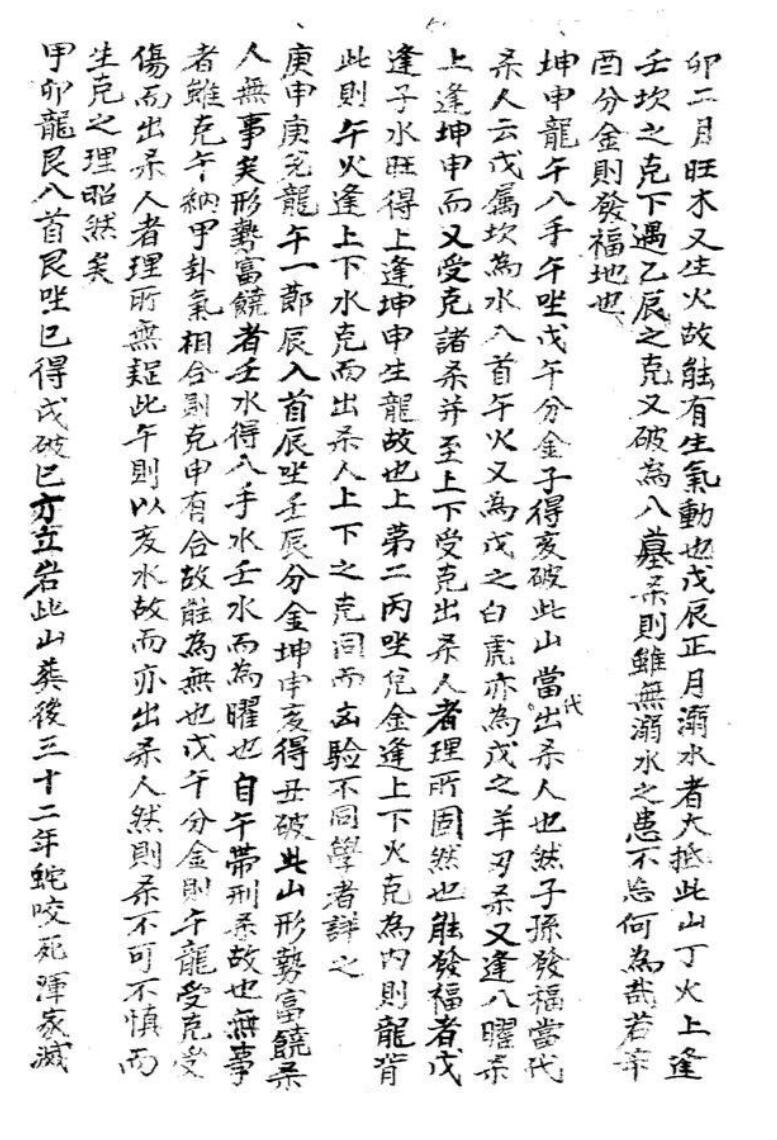 卯二月旺木又生火故能有生氣動也戊辰正月溺水者大抵此山丁火上逢
壬坎之克下遇乙辰之克又破為八墓杀則雖無溺水之患不忘何為哉若辛
酉分金則發福地也
坤申龍午八手午坐戊午分金子得亥破此山當代出杀人也然子孫發福當代
杀人云戊屬坎為水入首午火又為戊之白虎亦為戊之羊刃杀又逢八曜杀
上逢坤申而又受克諸杀并至上下受克出杀人者理所固然也能發福者戊
逢子水旺得上逢坤申生龍故也上第二丙坐兌金逢上下火克為內則龍背
此則午火逢上下水克而出杀人上下之克同而凶驗不同學者詳之
庚申庚兌龍午一節辰入首辰坐壬辰分金坤申亥得丑破此山形勢富饒杀
人無事矣形勢富饒者壬水得八手水壬水而為曜也自午帶刑杀故也無事
者雖克午納甲卦氣相合則克申有合故能為無也戊午分金則午龍受克受
傷而出杀人者理所無疑此午則以亥水故而亦出杀人然則杀不可不慎而
生克之理昭然矣
甲卯龍艮八首艮坐巳得戌破巳方立岩此山葬後三十二年蛇咬死渾家滅